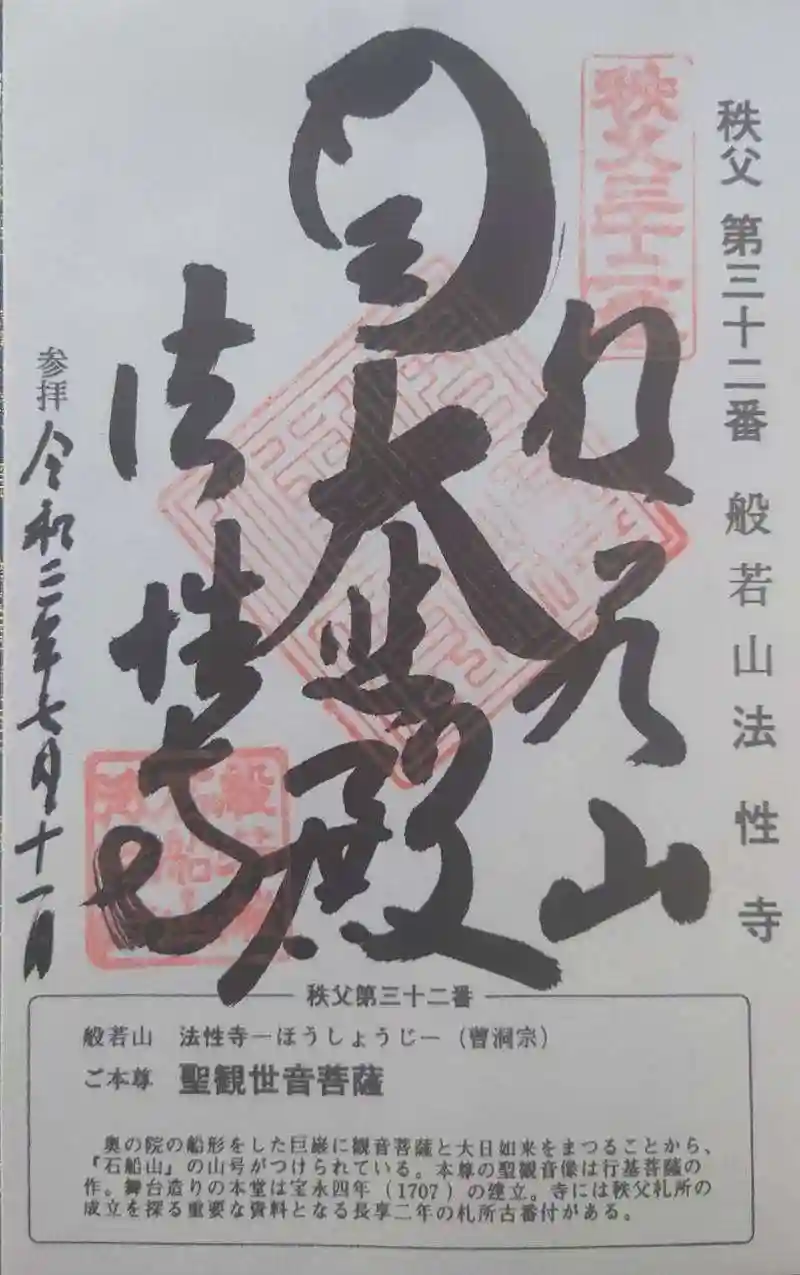 秩父 第三十二番 般若山法性寺
秩父三十二番
般若山
圓大悲殿
法性寺
参拝 令和二年七月十一日
秩父第三十二番
般若山 法性寺－ほうしょうじ－（曹洞宗）
ご本尊 聖観世音菩薩
奥の院の船形をした巨巌に観音菩薩と大日如来をまつることから、
『石船山』の山号がつけられている。本尊の聖観音像は行基菩薩の
作。舞台造りの本堂は宝永四年（1707）の建立。寺には秩父札所の
成立を探る重要な資料となる長享二年の札所古番付がある。